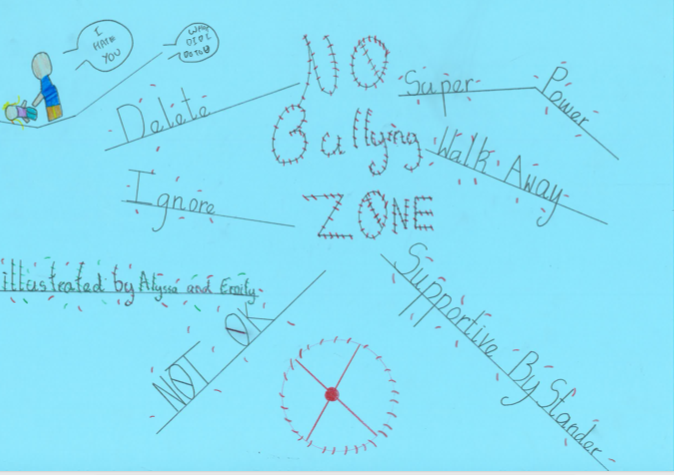 I
HATE
YOU
WHAT
DID I
DO TO U
NO
Bullying
ZONE
Delete
Super Power
Walk Away
Ignore
illustrated by Alyssa and Emily
NOT OK
Supportive By Stander